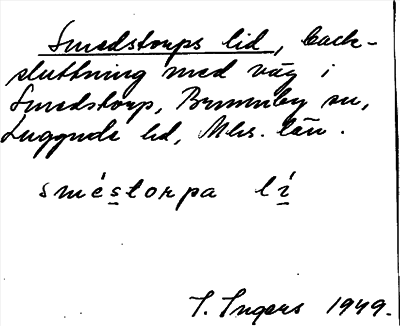 Smedstorps lid, back-
sluttning med väg i
Smedstorp, Brunnby sn,
Luggude hd, Mhs. län.
sméstorpa lí
I. Ingers 1949.